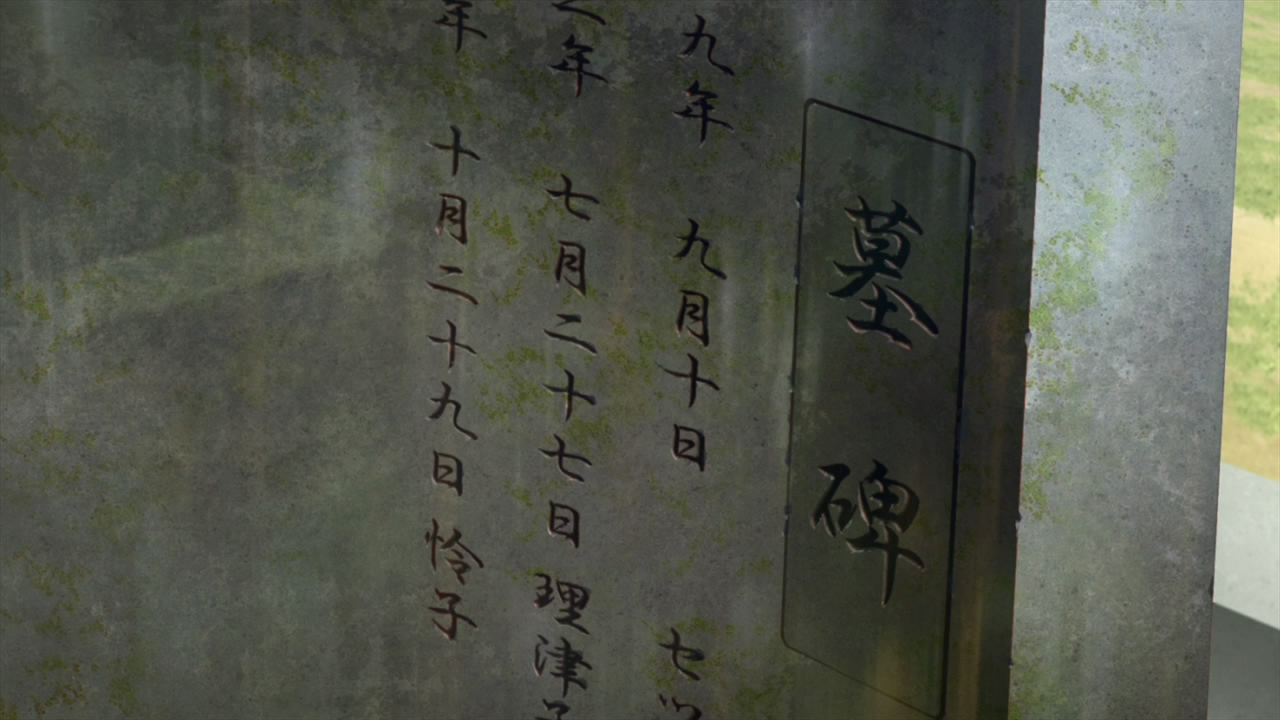 墓碑
九年 九月十日 セツ
年 七月二十七日 理津子
年 十月二十九日 怜子